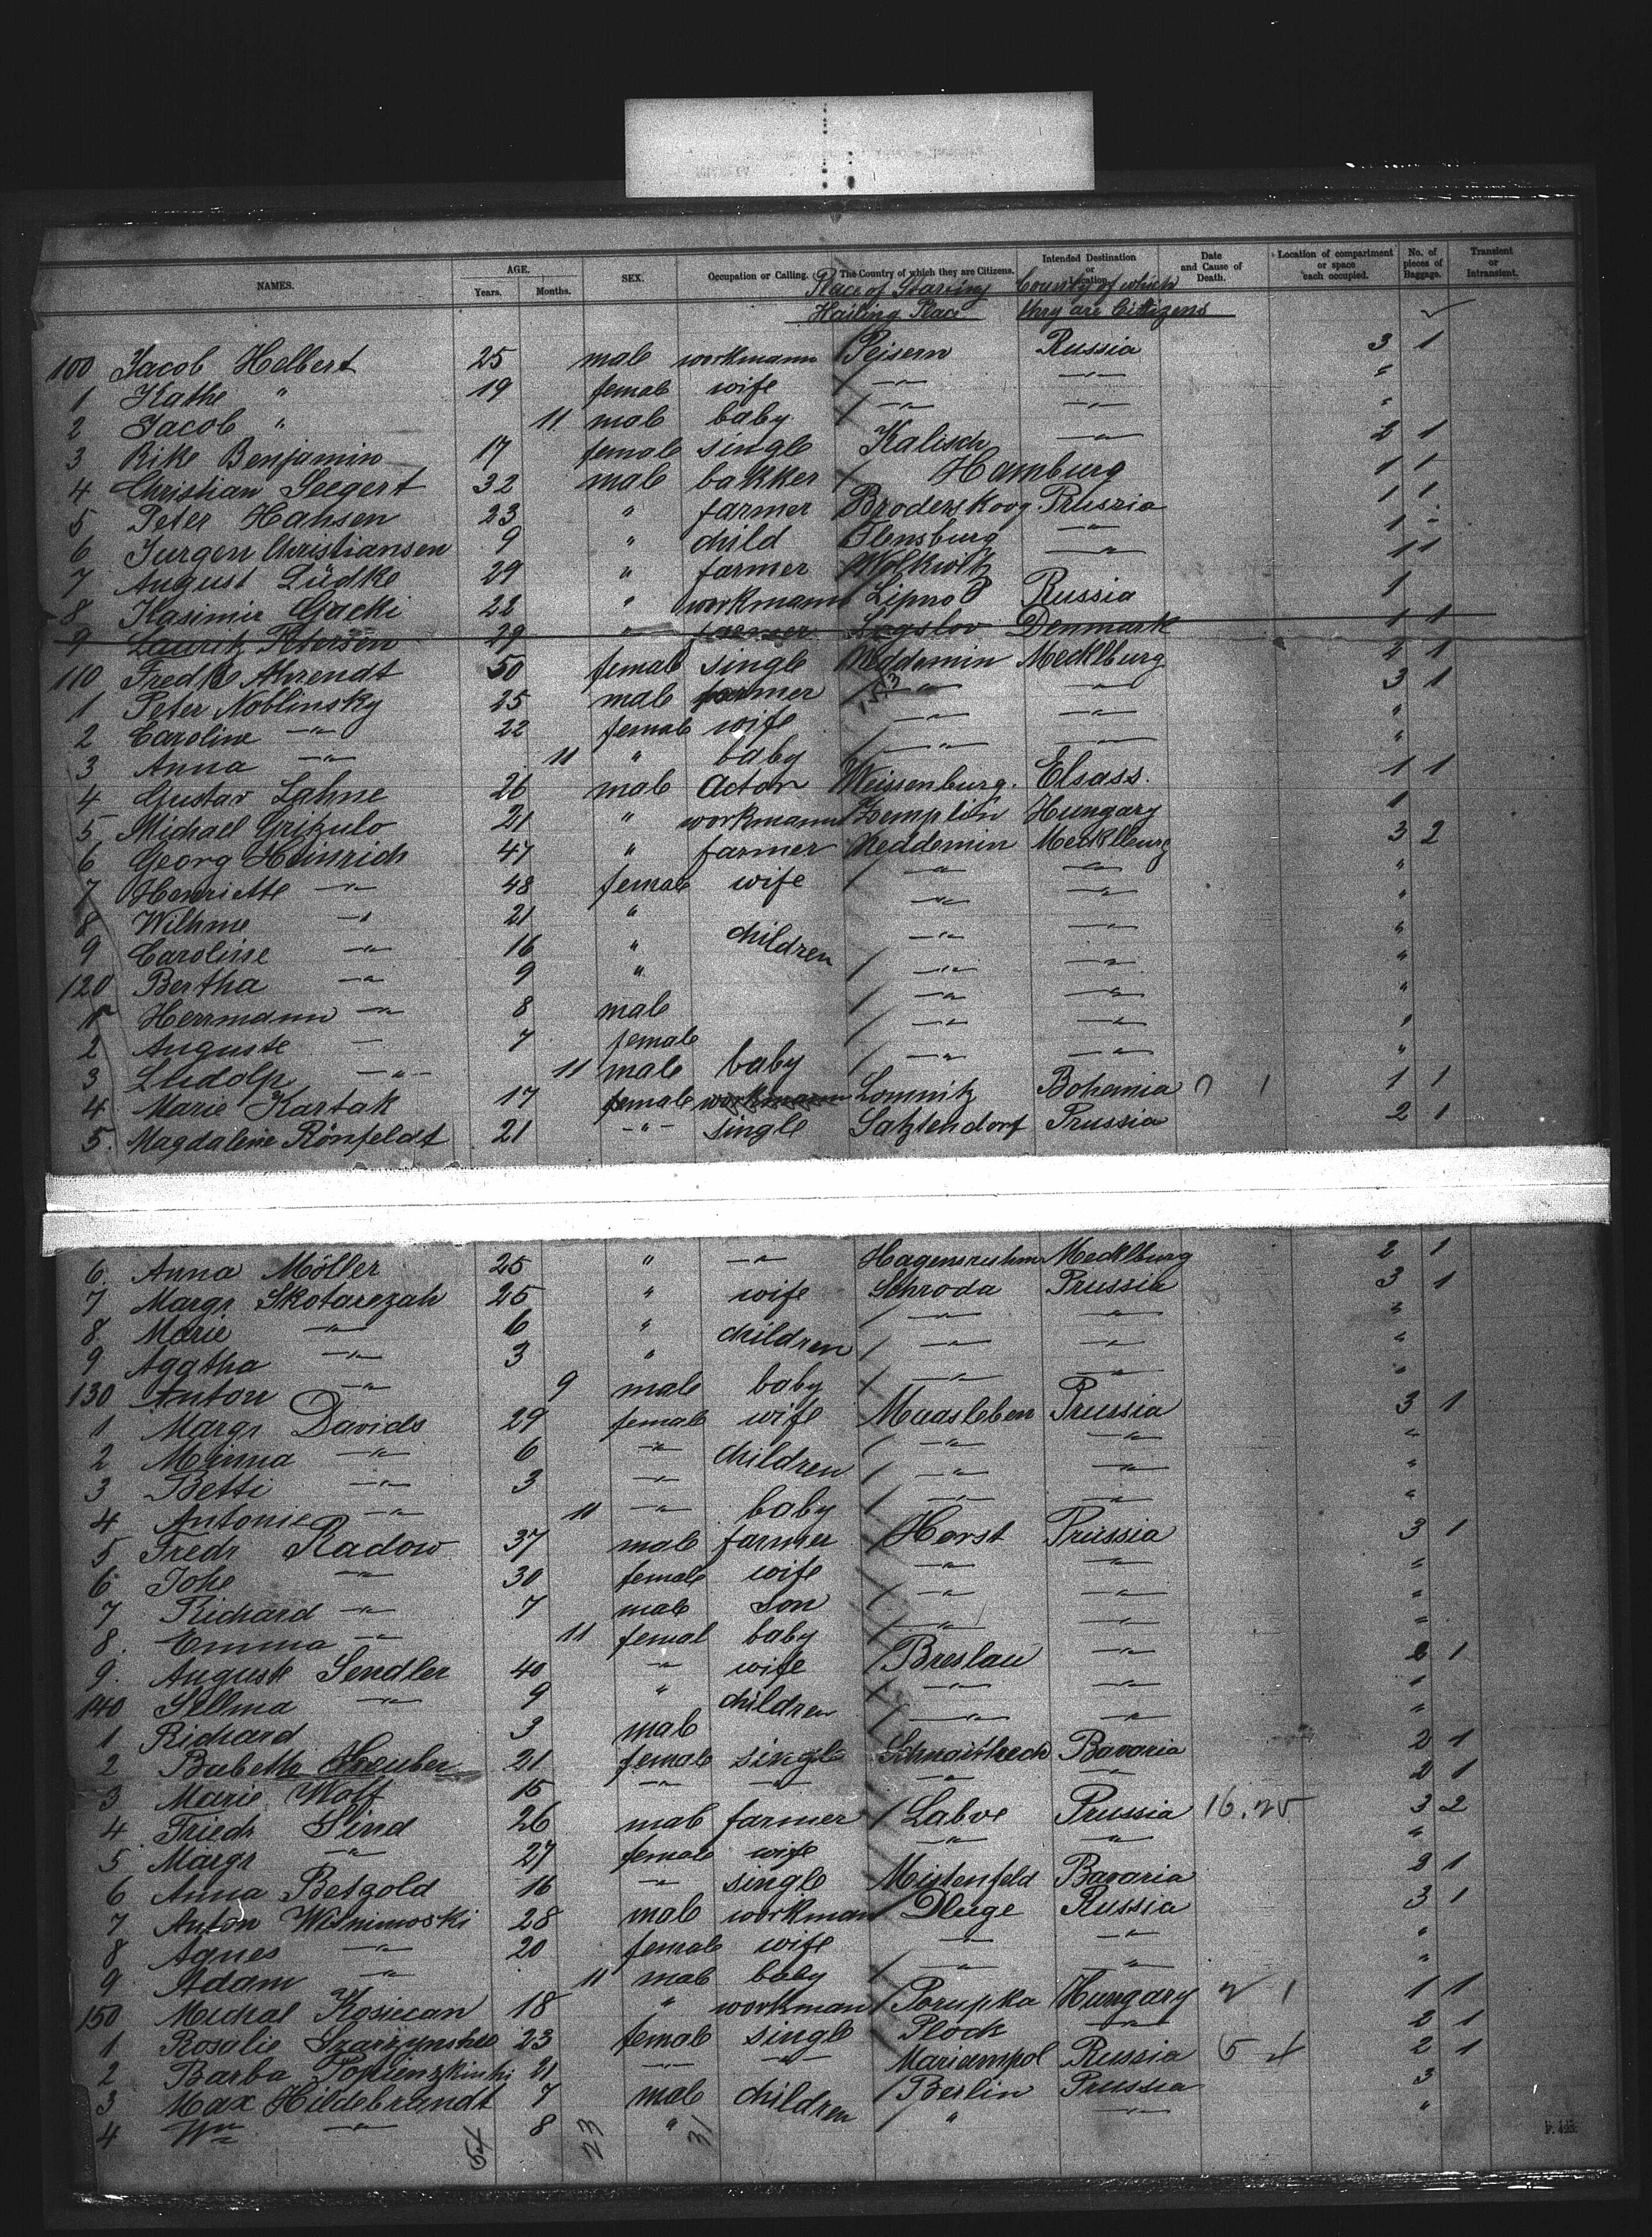 NAMES. AGE. Years. Months. SEX. Occupation or Calling. The Country of which they are Citizens. Intended Destination or Location. Date and Cause of Death. Location of compartment or space each occupied. No. of pieces of Baggage. Transient or Intransient.
Place of Starting County of which
Hailing Place they are Cittizens
100 Jacob Helbert 25 male workmann Peisern Russia 3 1
1 Kathe " 19 female wife / —"— —"— "
2 Jacob " 11 male baby / —"— —"— "
3 Rike Benjamin 17 female single Kalisch —"— 2 1
4 Christian Seegert 32 male bakker / Hamburg 1 1
5 Peter Hansen 23 " farmer Broderskoog Prussia 1 1
6 Jurgen Christiansen 9 " child Flensburg —"— 1 -
7 August Lüdke 29 " farmer Wolkwitz —"— 1 1
8 Kasimir Gacki 22 " workmann Lipno P Russia 1
9 Lauritz Petersen 29 " farmer Lygslov Denmark 1 1
110 Fredke Ahrendt 50 female single Neddemin Mecklburg 2 1
1 Peter Noblinsky 25 male farmer / —"— —"— 3 1
2 Caroline —"— 22 female wife / —"— —"— "
3 Anna —"— 11 " baby / —"— —"— "
4 Gustav Lahne 26 male Actor Weissenburg. Elsass. 1 1
5 Michael Grizulo 21 " workmann Zemplin Hungary 1
6 Georg Heinrich 47 " farmer Neddemin Mecklburg 3 2
7 Henriette —"— 48 female wife / —"— —"— "
8 Wilhme —"— 21 " —"— —"— "
9 Caroline —"— 16 " children —"— —"— "
120 Bertha —"— 9 " / —"— —"— "
1 Herrmann —"— 8 male / —"— —"— "
2 Auguste — 7 female / —"— —"— "
3 Ludolp —"— 11 male baby / —"— —"— "
4 Marie Kartak 17 female workmann Lomnitz Bohemia 1 1
5. Magdalene Rönfeldt 21 —"— single Satzlendorf Prussia 2 1
6. Anna Möller 25 " —"— Hagensruhm Mecklburg 2 1
7 Margr Skotarezah 25 " wife Schroda Prussia 3 1
8 Marie —"— 6 " children / —"— —"— "
9 Aggtha —"— 3 " / —"— —"— "
130 Anton —"— 9 male baby / —"— —"— "
1 Margr Davids 29 female wife Maasleben Prussia 3 1
2 Minna —"— 6 —"— children / —"— —"— "
3 Betti —"— 3 —"— / —"— —"— "
4 Antonie —"— 11 —"— baby / —"— —"— "
5 Fredr Radow 37 male farmer / Horst Prussia 3 1
6 Johe —"— 30 female wife / —"— —"— "
7 Richard —"— 7 male son / —"— —"— "
8. Emma —"— 11 femal baby / —"— —"— "
9. Auguste Sendler 40 —"— wife / Breslau —"— 2 1
140 Sellma —"— 9 " children / —"— —"— "
1 Richard 3 male / —"— —"— "
2 Babette Heuber 21 female single Schnaittrech Bavaria 2 1
3 Marie Wolf 15 —"— —"— —"— —"— 2 1
4 Friedr Sind 26 male farmer / Laboe Prussia 16.25 3 2
5 Margr —"— 27 female wife —"— —"— "
6 Anna Betzold 16 —"— single Mistenfeld Bavaria 2 1
7 Anton Wisnimoski 28 male workman / Dluge Russia 3 1
8 Agnes —"— 20 female wife —"— —"— "
9 Adam —"— 11 male baby / —"— —"— "
150 Michal Kosiecan 18 " workman / Porupka Hungary 2 1 1 1
1 Rosalie 23 female single Plock —"— 2 1
2 Barba 21 —"— —"— Mariampol Russia 2 1
3 Max Hildebrandt 7 male children / Berlin Prussia 3
4 Wm —"— 8 " / " —"— "
54 23 31